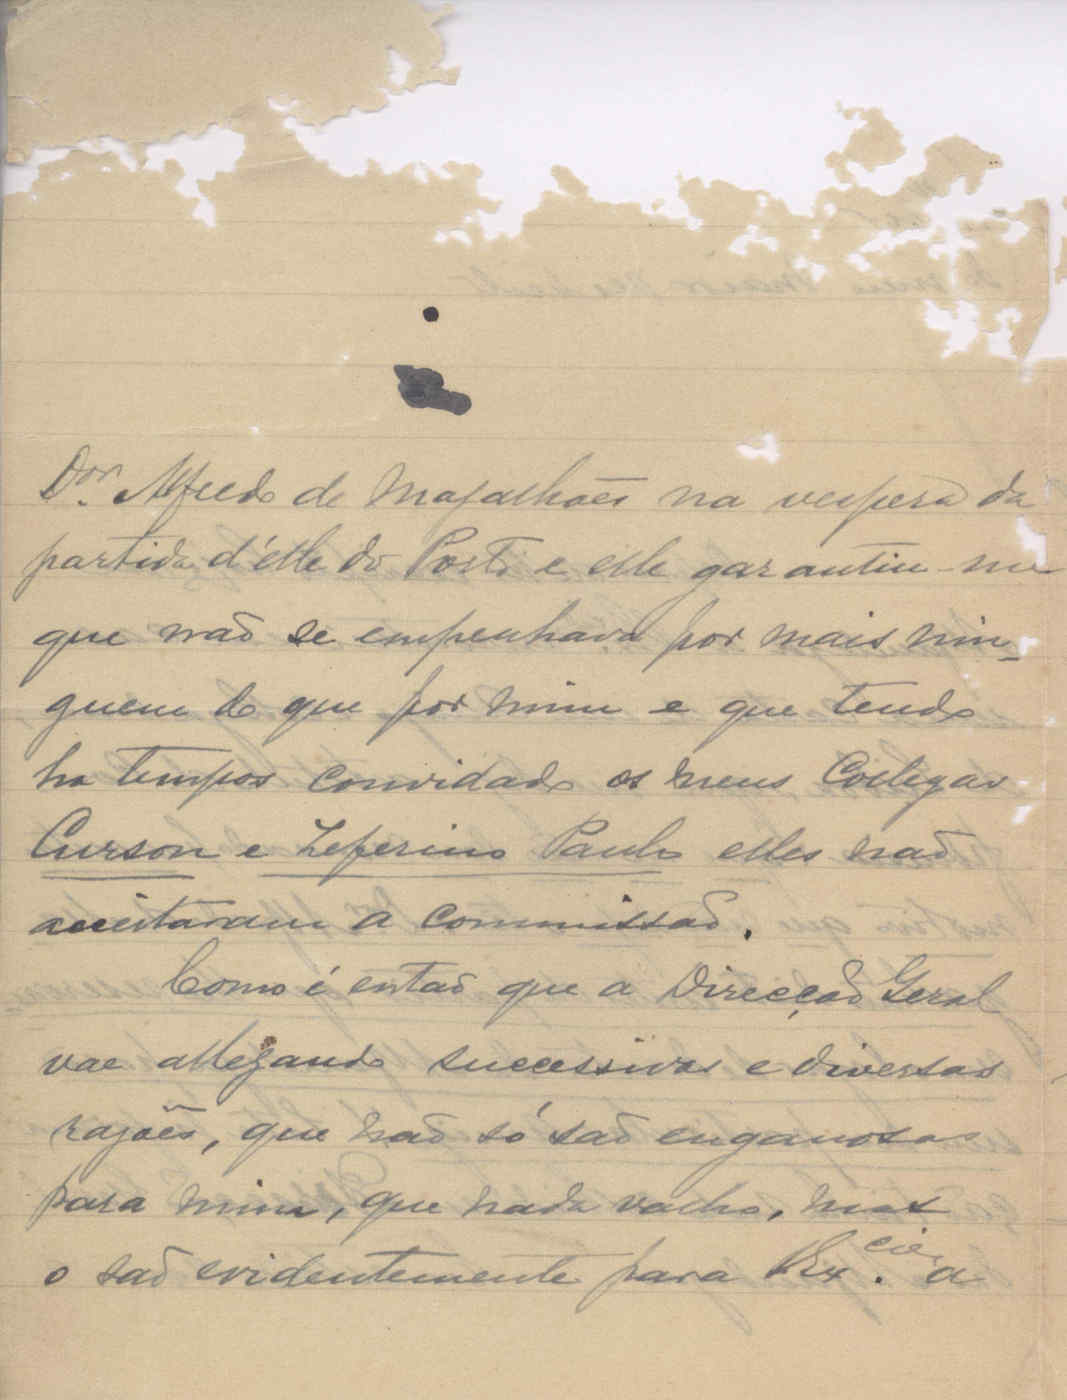 Dor. Alfredo de Magalhães na vespera da
partida d'elle do Porto e elle garantiu-me
que naõ se empenhava por mais nin-
guem do que por mim e que tendo
ha tempos convidado os meus Collegas
Curson e Zeferino Paulo elles naõ
acceitaram a commissaõ.
Como é entaõ que a Direcçaõ Geral
vae allegando successivas e diversas
razoẽs, que naõ só saõ enganosas
para mim, que nada valho, mas
o saõ evidentemente para V.Ex.cia a